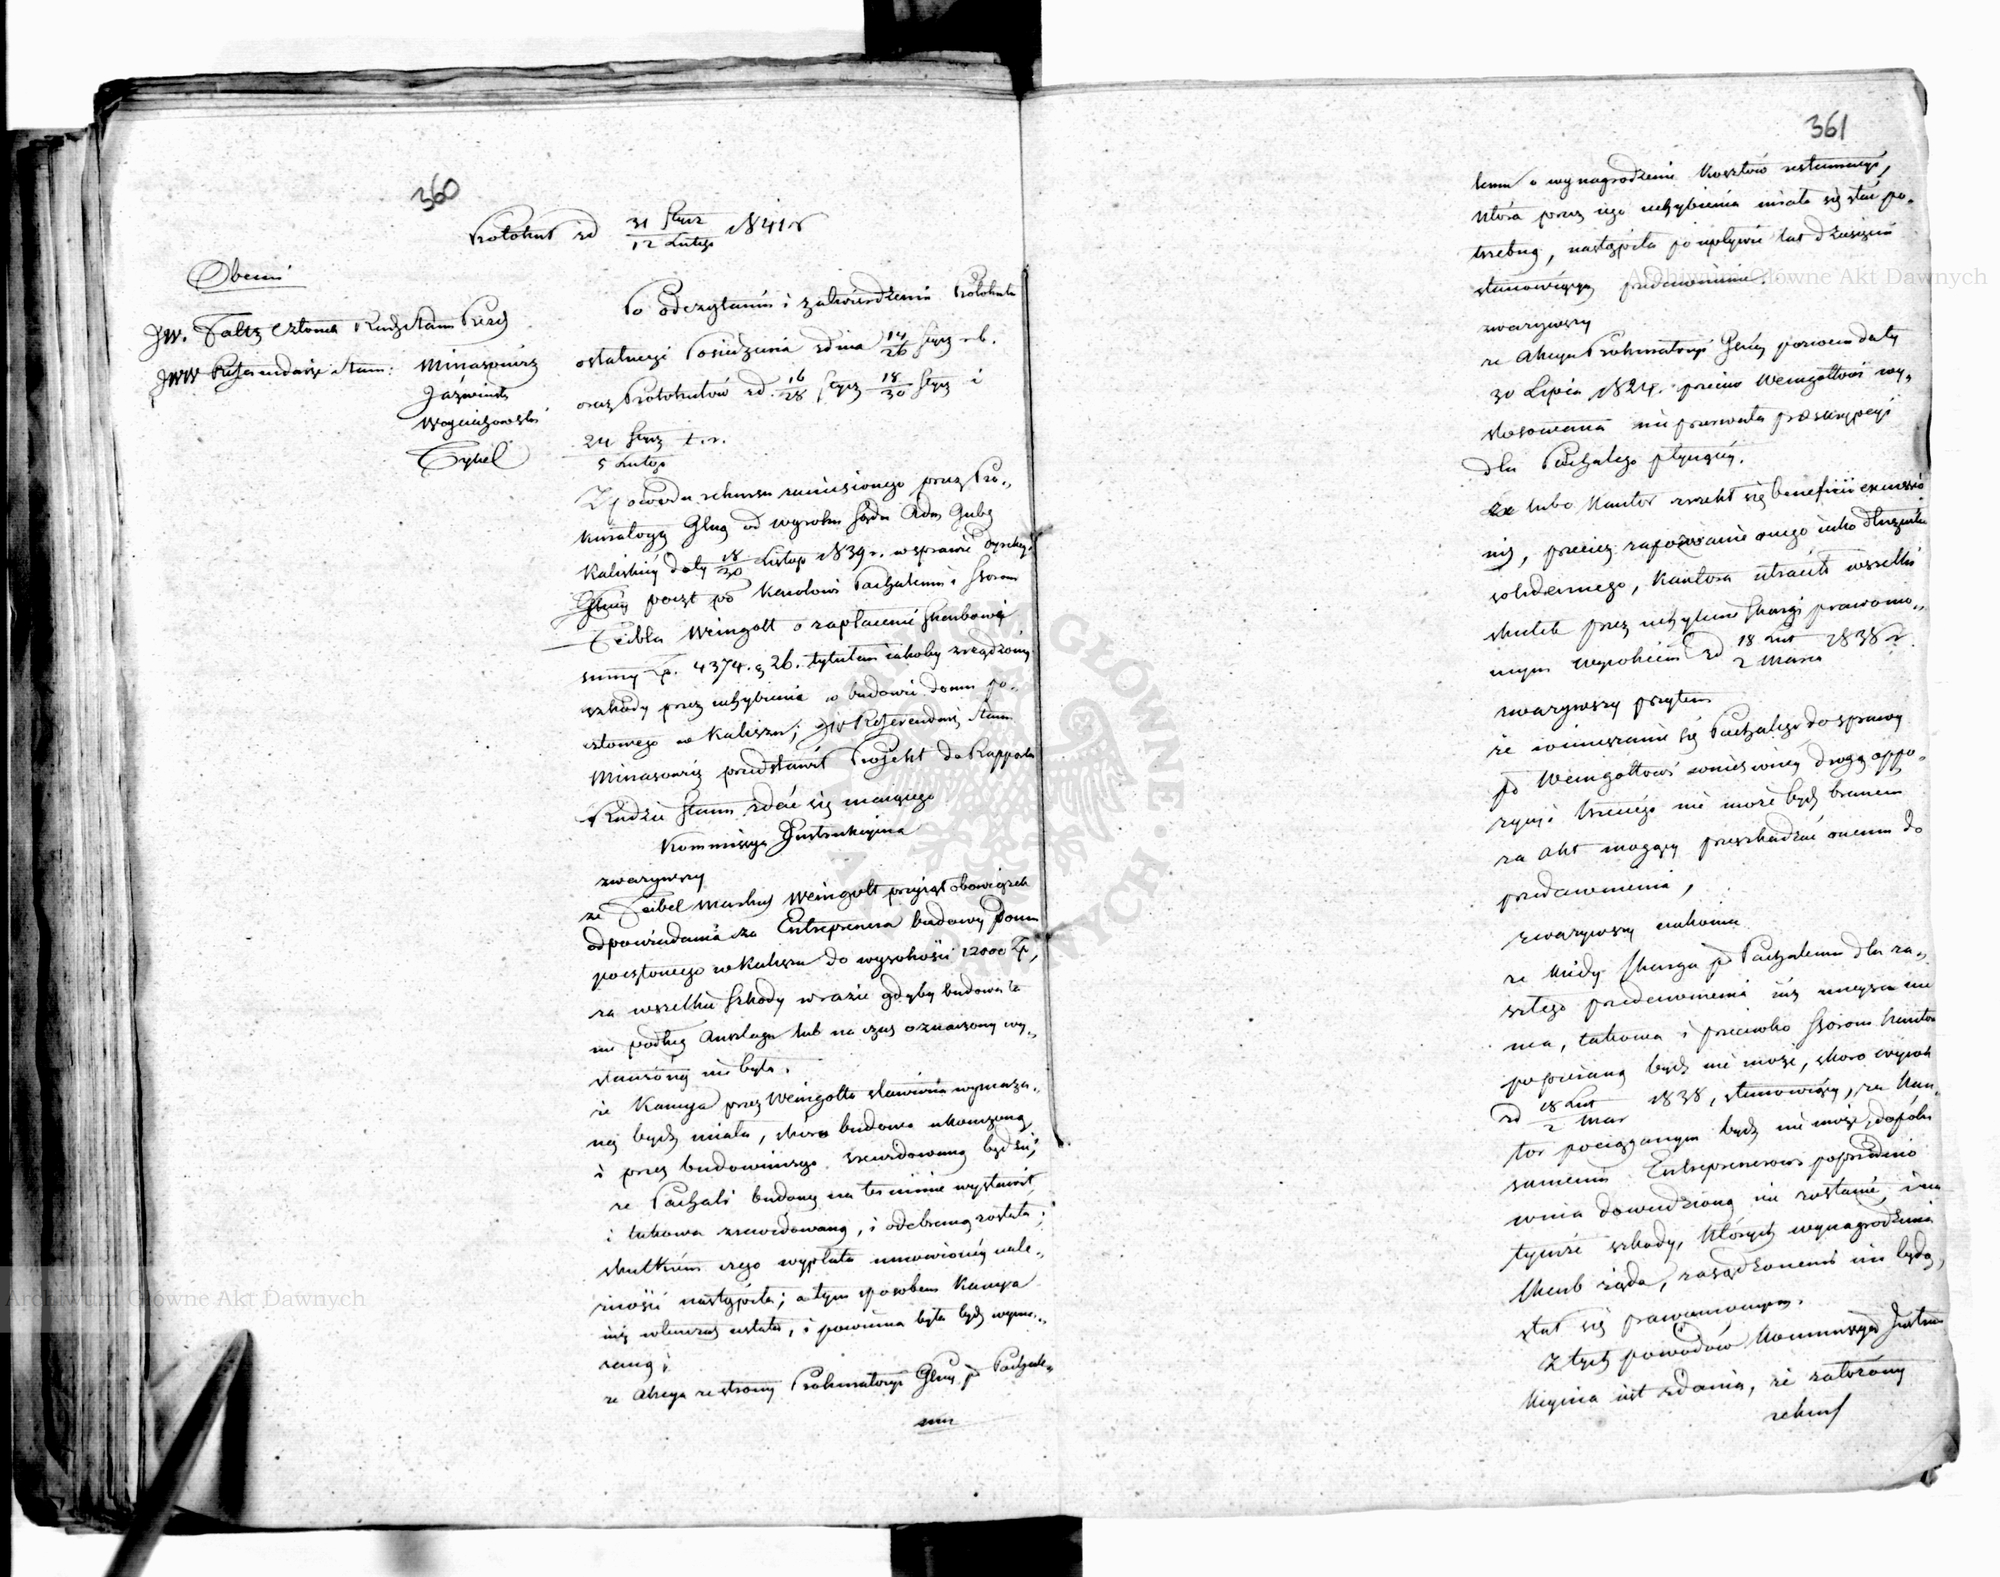 360
Protokuł zd 31 Stycz / 12 Lutego 1841 r
Obecni
JW. Faltz Członek Rady Stanu Prezd
JWW Referendarze Stanu: Minasowicz
Jaźwiński
Wojciechowski
Tykel
Po odczytaniu i zatwierdzeniu Protokułu
ostatniego Posiedzenia z dnia 14/26 Stycz r.b.
oraz Protokułów zd. 16/28 Stycz 18/30 Stycz i
24 Stycz / 5 Lutego t. r.
Z powodu rekursu zaniesionego przez Pro„
kuratoryą Głną od wyroku Sądu Adm Gubę
Kaliskiey daty 18/30 Listop 1839 r. w sprawie Dyrekcyi
Głney poczt po Karolowi Pachalemu i Ssorom
Feibla Weingott o zapłacenie Skarbowi
summy Zp. 4374. g 26. tytułem jakoby zrządzoney
szkody przez uchybienia w budowie domu po„
cztowego w Kaliszu; JW Referendarz Stanu
Minasowicz przedstawił Projekt do Rapportu
Radzie Stanu zdać się mającego
Kommissya Instrukcyina
zważywszy
że Feibel Markus Weingott przyjął obowiązek
odpowiadania za Entreprenera budowy Domu
pocztowego w Kaliszu do wysokości 12000 Zp,
za wszelkie szkody w razie gdyby budowa ta
nie podług Anszlagu lub na czas oznaczony wy„
stawioną nie była.
że Kaucya przez Weingotta stawiona wymaza„
ną bydź miała, skoro budowa ukończoną
i przez budowniczego zrewidowaną będzie;
że Pachali budowę na terminie wystawił
i takowa zrewidowaną, i odebraną została;
skutkiem czego wypłata umowioney nale„
żności nastąpiła; a tym sposobem Kaucya
już wówczas ustała, i powinna była bydź wyma„
zaną;
że Akcya ze strony Prokuratoryi Głney po Pachale„
mu
361
lemu o wynagrodzenie kosztów restauracyi,
która przez jego uchybienia miała się stać po„
trzebną, nastąpiła po upływie lat dziesięciu
stanowiących przedawnienie.
zważywszy
że Akcya Prokuratoryi Głney pozwem daty
30 Lipca 1824. przeciw Weingottowi wy„
stosowana nie przerwała preskrypcyi
dla Pachalego płynącey.
że lubo Kantor zrzekł się beneficii excussio
nis, przeciez zapozwanie onego iako dłużnika
solidarnego, Kantora utraciło wszelki
skutek przez uchylenie Skargi prawomo„
cnym Wyrokiem zd 18 Lut / 2 Marca 1838 r.
zważywszy przytem
że wmieszanie się Pachalego do sprawy
po Weingottowi wniesioney drogą oppo„
zycyi trzeciego nie może bydź branem
za akt mogący przeszkadzać onemu do
przedawnienia,
zważywszy nakoniec
że kiedy Skarga po Pachalemu dla za„
szłego przedawnienia iuż mieysca nie
ma, takowa i przeciwko Ssorom Kantora
popieraną bydź nie może, skoro wyrok
zd 18 Lut / 2 Mar 1838, stanowiący, że Kan„
tor pociąganym bydź nie może, dopóki
samemu Entreprenerowi poprzednio
wina dowiedzioną nie zostanie, i na
tymże szkody, których wynagrodzenia
Skarb żąda, zasądzonemi nie będą,
stał się prawomocnym.
Z tych powodów Kommissya Instru
kcyina iest zdania, że założony
rekurs
Archiwum Główne Akt Dawnych
Archiwum Główne Akt Dawnych